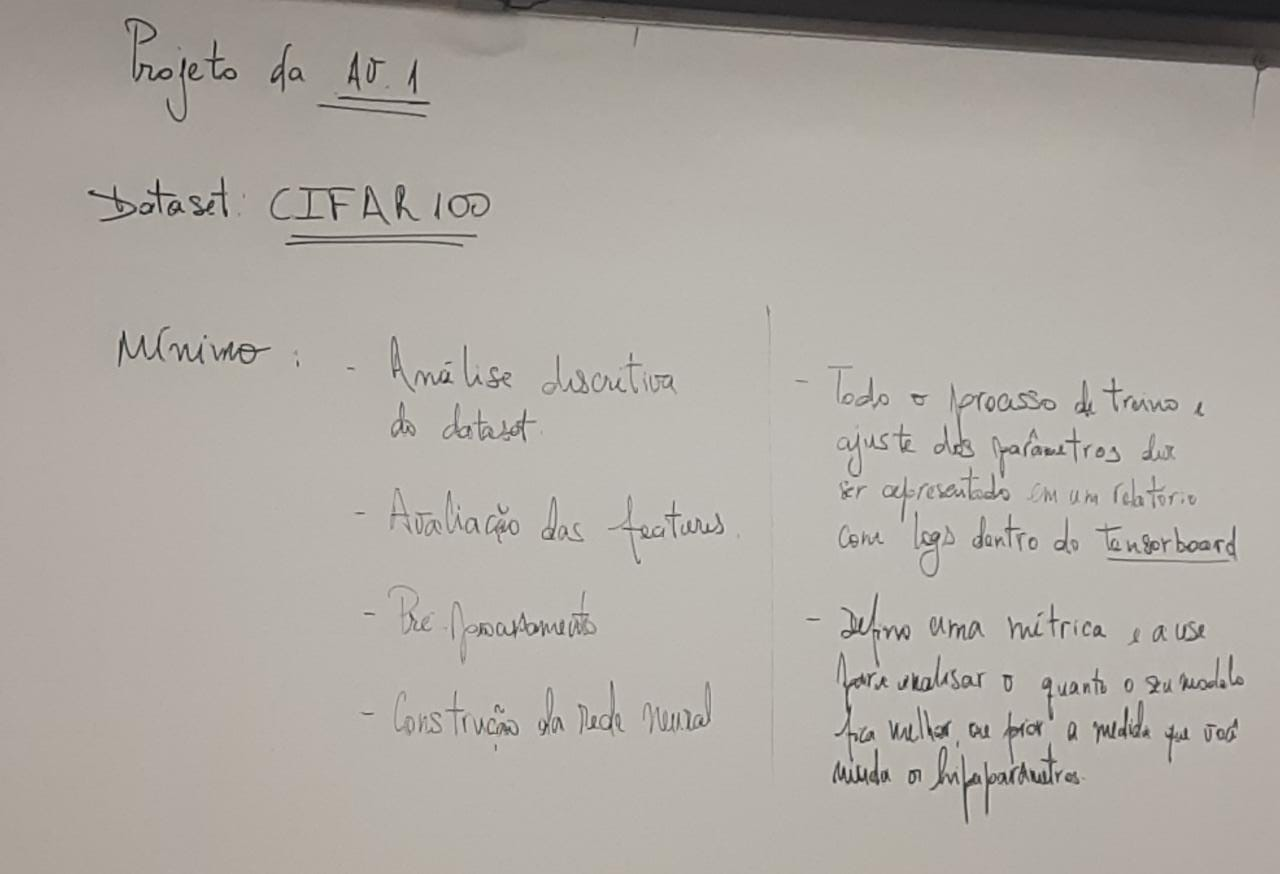 Projeto da AV. 1
Dataset: CIFAR 100
Mínimo :
- Análise discritiva
do dataset.
- Avaliação das features.
- Pré-processamento
- Construção da rede neural
- Todo o processo de treino e
ajuste dos parâmetros deve
ser apresentado em um relatório
com logs dentro do tensorboard
- Defina uma métrica e a use
para analisar o quanto o seu modelo
fica melhor ou pior a medida que você
muda os hiperparâmetros.